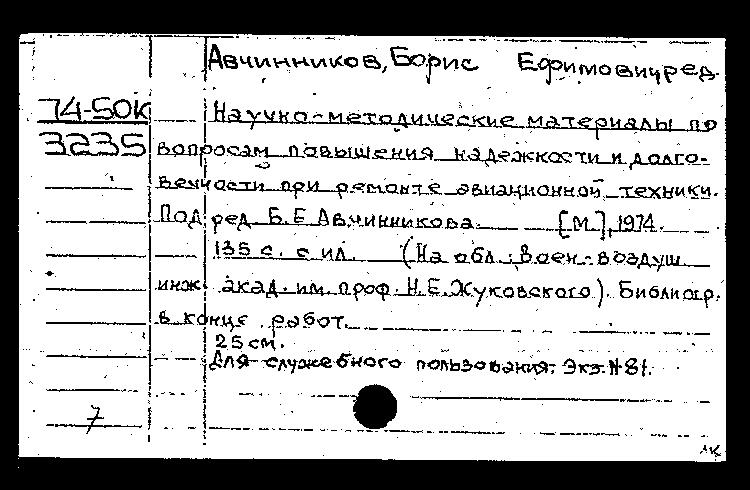 Авчинников, Борис Ефимович, ред.
74-50к
3235
Научно-методические материалы по
вопросам повышения надежности и долго-
вечности при ремонте авиационной техники.
Под ред. Б. Е. Авчинникова. [М.], 1974.
135 с. с ил. (На обл.: Воен.-воздуш.
инж. акад. им. проф. Н.Е. Жуковского). Библиогр.
в конце работ.
25 см.
Для служебного пользования. Экз. № 81.
7